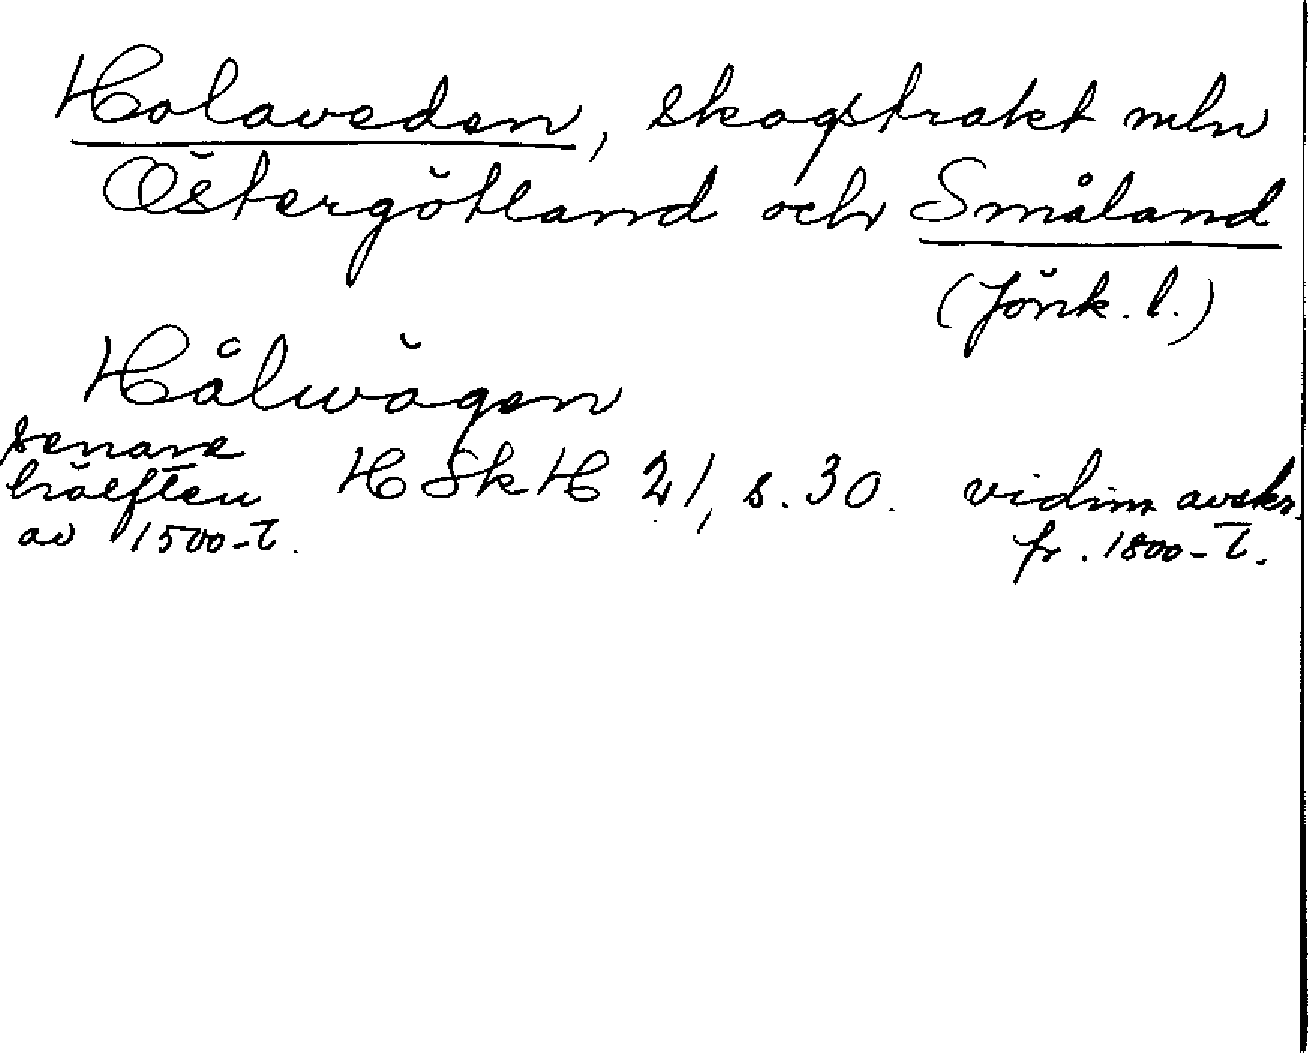 Holaveden, skogstrakt mln
Östergötland och Småland
(Jönk. l.)
Hålwägen
senare
hälften HSkH 21, s. 30. vidim. avskr.
av 1500-t. fr. 1800-t.